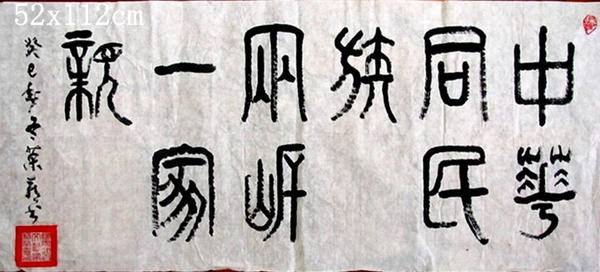 52x112cm
中華
同民
族
兩岸
一家
親
癸巳